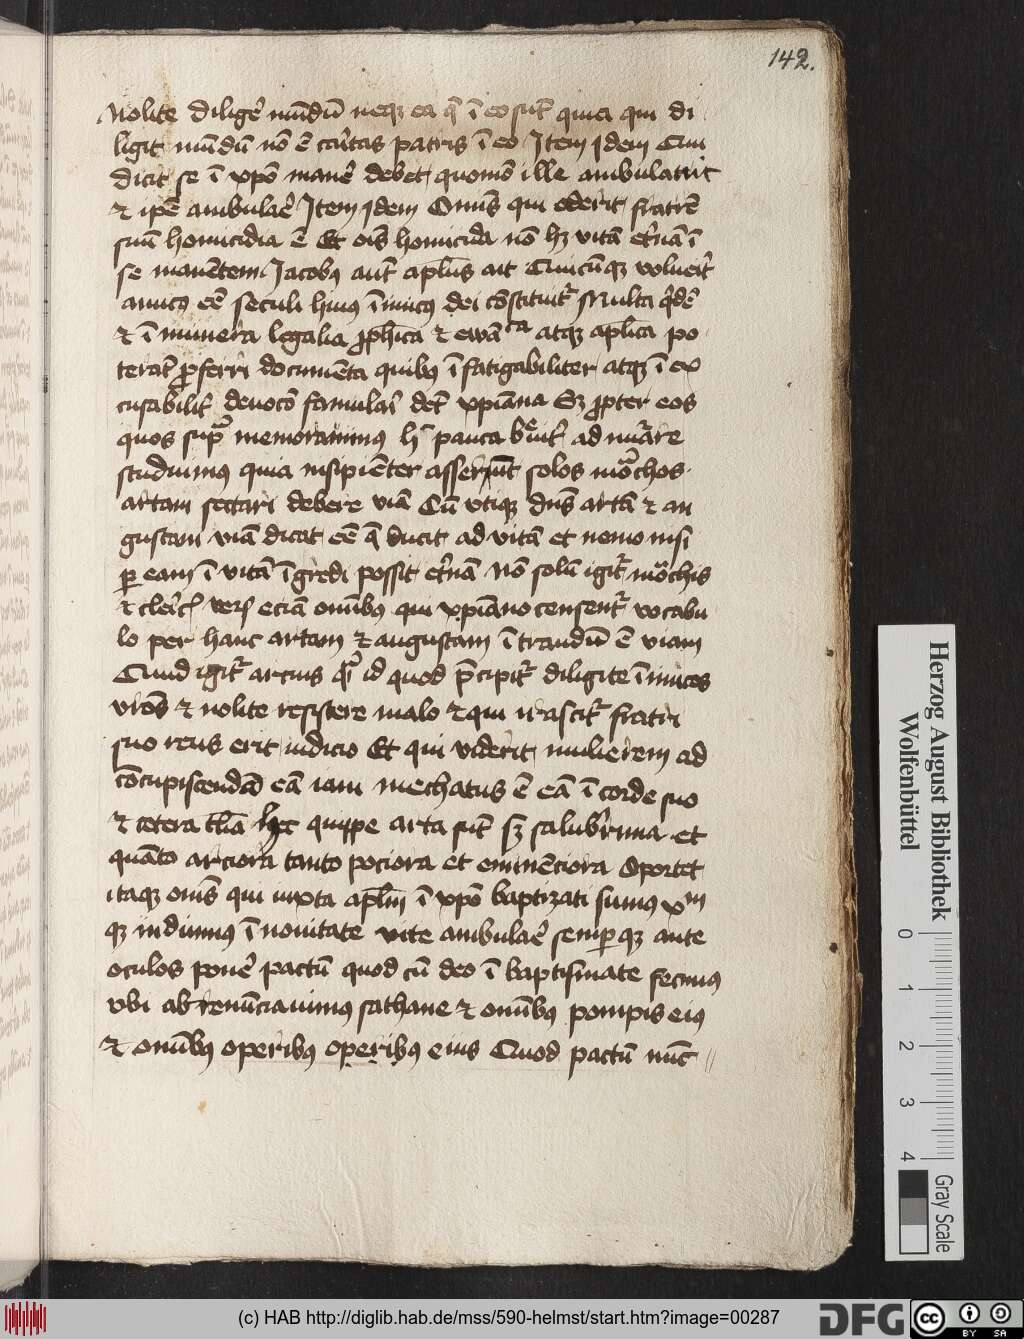 142.
Nolite diligē mūdū neqʒ ea q̄ ī eo sūt quia qui di
ligit mūdū nō ē cāitas patris ī eo Item idem Qui
dicit se ī xpō manē debet quomō ille ambulauit
⁊ ipē ambulaē Item idem Omīs qui oderit fratrē
suū homicidia ē Et oīs homicida nō hʒ vitā et̄nā ī
se manētem Iacobꝯ aut̄ apl̄us ait Quicūqʒ voluerit
amicꝯ eē seculi huiꝯ īmicꝯ dei cōstituit᷑ Multa qͥdē
⁊ īmunera legalia ꝓph̄ica ⁊ ewā ca atqʒ apl̄ica po
terāt ꝓferri documēta quibꝯ īfatigabiliter atqʒ īex
cusabilit᷑ deuotō famulāi det᷑ xpiāna Sʒ ꝓpter eos
quos supᵃ memorauimus h̄ pauca breuit᷑ ad nuāre
studuimꝯ quia insipiēter asserūt solos mōchos
artam sectari debere viā Cū vtiqʒ dn̄s artā ⁊ an
gustam viā dicat eē q̄ ducit ad vitā et nemo nisi
ꝑ eam ī vitā īgredi possit et̄nā Nō solū igit᷑ mōchis
⁊ cleīcꝭ verꝭ eciā om̄ibꝯ qui xpiāno censent᷑ vocabu
lo per hanc artam ⁊ angustam ītrandū ē viam
Quid igit᷑ arcius qͣ id quod p̄cipit᷑ diligite īimicos
vr̄os ⁊ nolite resistere malo ⁊ qui irascit᷑ fratri
suo reus erit iudicio Et qui viderit mulierem ad
cōcupiscendā eā iam mechatus ē eā ī corde suo
⁊ cetera t̄lia hec quippe arta sūt sʒ saluberima et
quāto arciora tanto pociora et eminēciora Oportet
itaqʒ om̄s qui iuxta apl̄m ī xpō baptizati sumꝯ xᵐ
qʒ induimꝯ ī nouitate vite ambulaē semꝑqʒ ante
oculos ponē pactū quod cū deo ī baptismate fecimꝯ
vbi abrenūciauimꝯ sathane ⁊ om̄ibꝯ pompis eiꝯ
⁊ om̄ibꝯ operibꝯ operibꝯ eius Quod pactū nūc
Herzog August Bibliothek
Wolfenbüttel
0 1 2 3 4
Gray Scale
(c) HAB http://diglib.hab.de/mss/590-helmst/start.htm?image=00287
DFG
cc BY SA